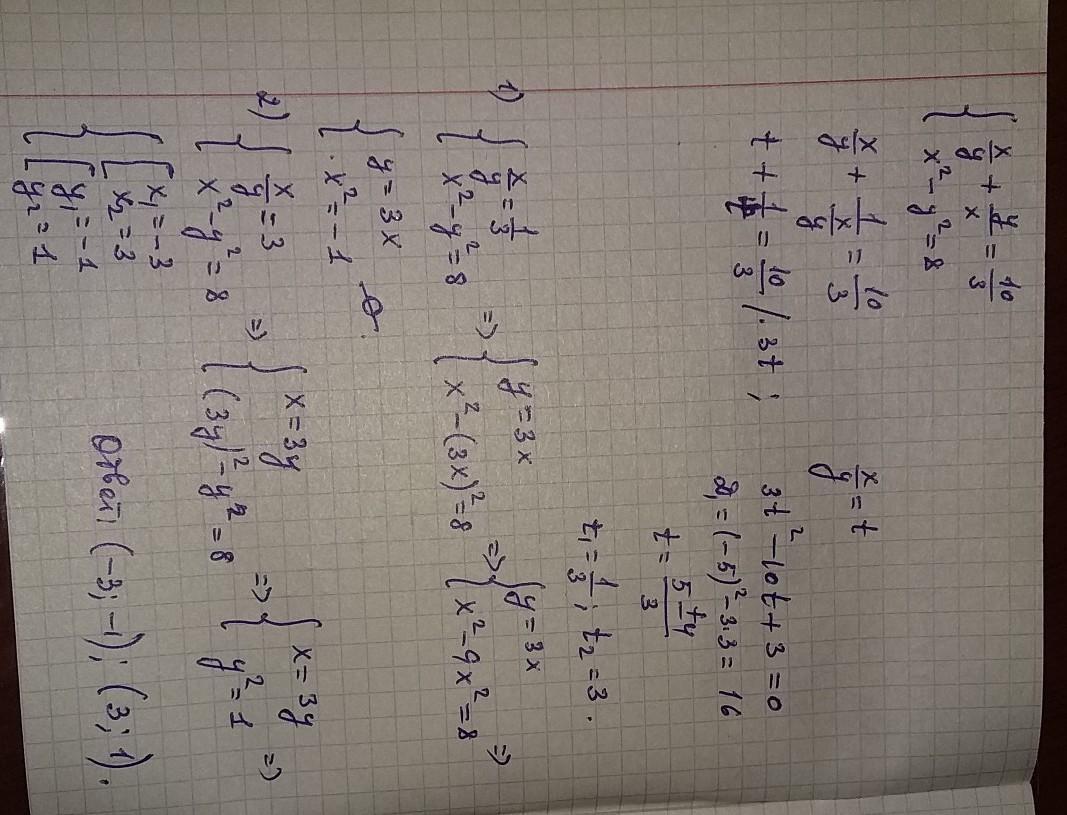 { x/y + y/x = 10/3
{ x² - y² = 8
x/y + 1/(x/y) = 10/3    x/y = t
t + 1/t = 10/3 /·3t ;    3t² - 10t + 3 = 0
D₁ = (-5)² - 3·3 = 16
t = (5 ± 4)/3
t₁ = 1/3 ; t₂ = 3.
1) { x/y = 1/3 ; x² - y² = 8 => { y = 3x ; x² - (3x)² = 8 => { y = 3x ; x² - 9x² = 8 =>
{ y = 3x
{ x² = -1 ∅.
2) { x/y = 3 ; x² - y² = 8 => { x = 3y ; (3y)² - y² = 8 => { x = 3y ; y² = 1 =>
{ [ x₁ = -3
x₂ = 3
[ y₁ = -1
y₂ = 1
Ответ: (-3; -1); (3; 1).